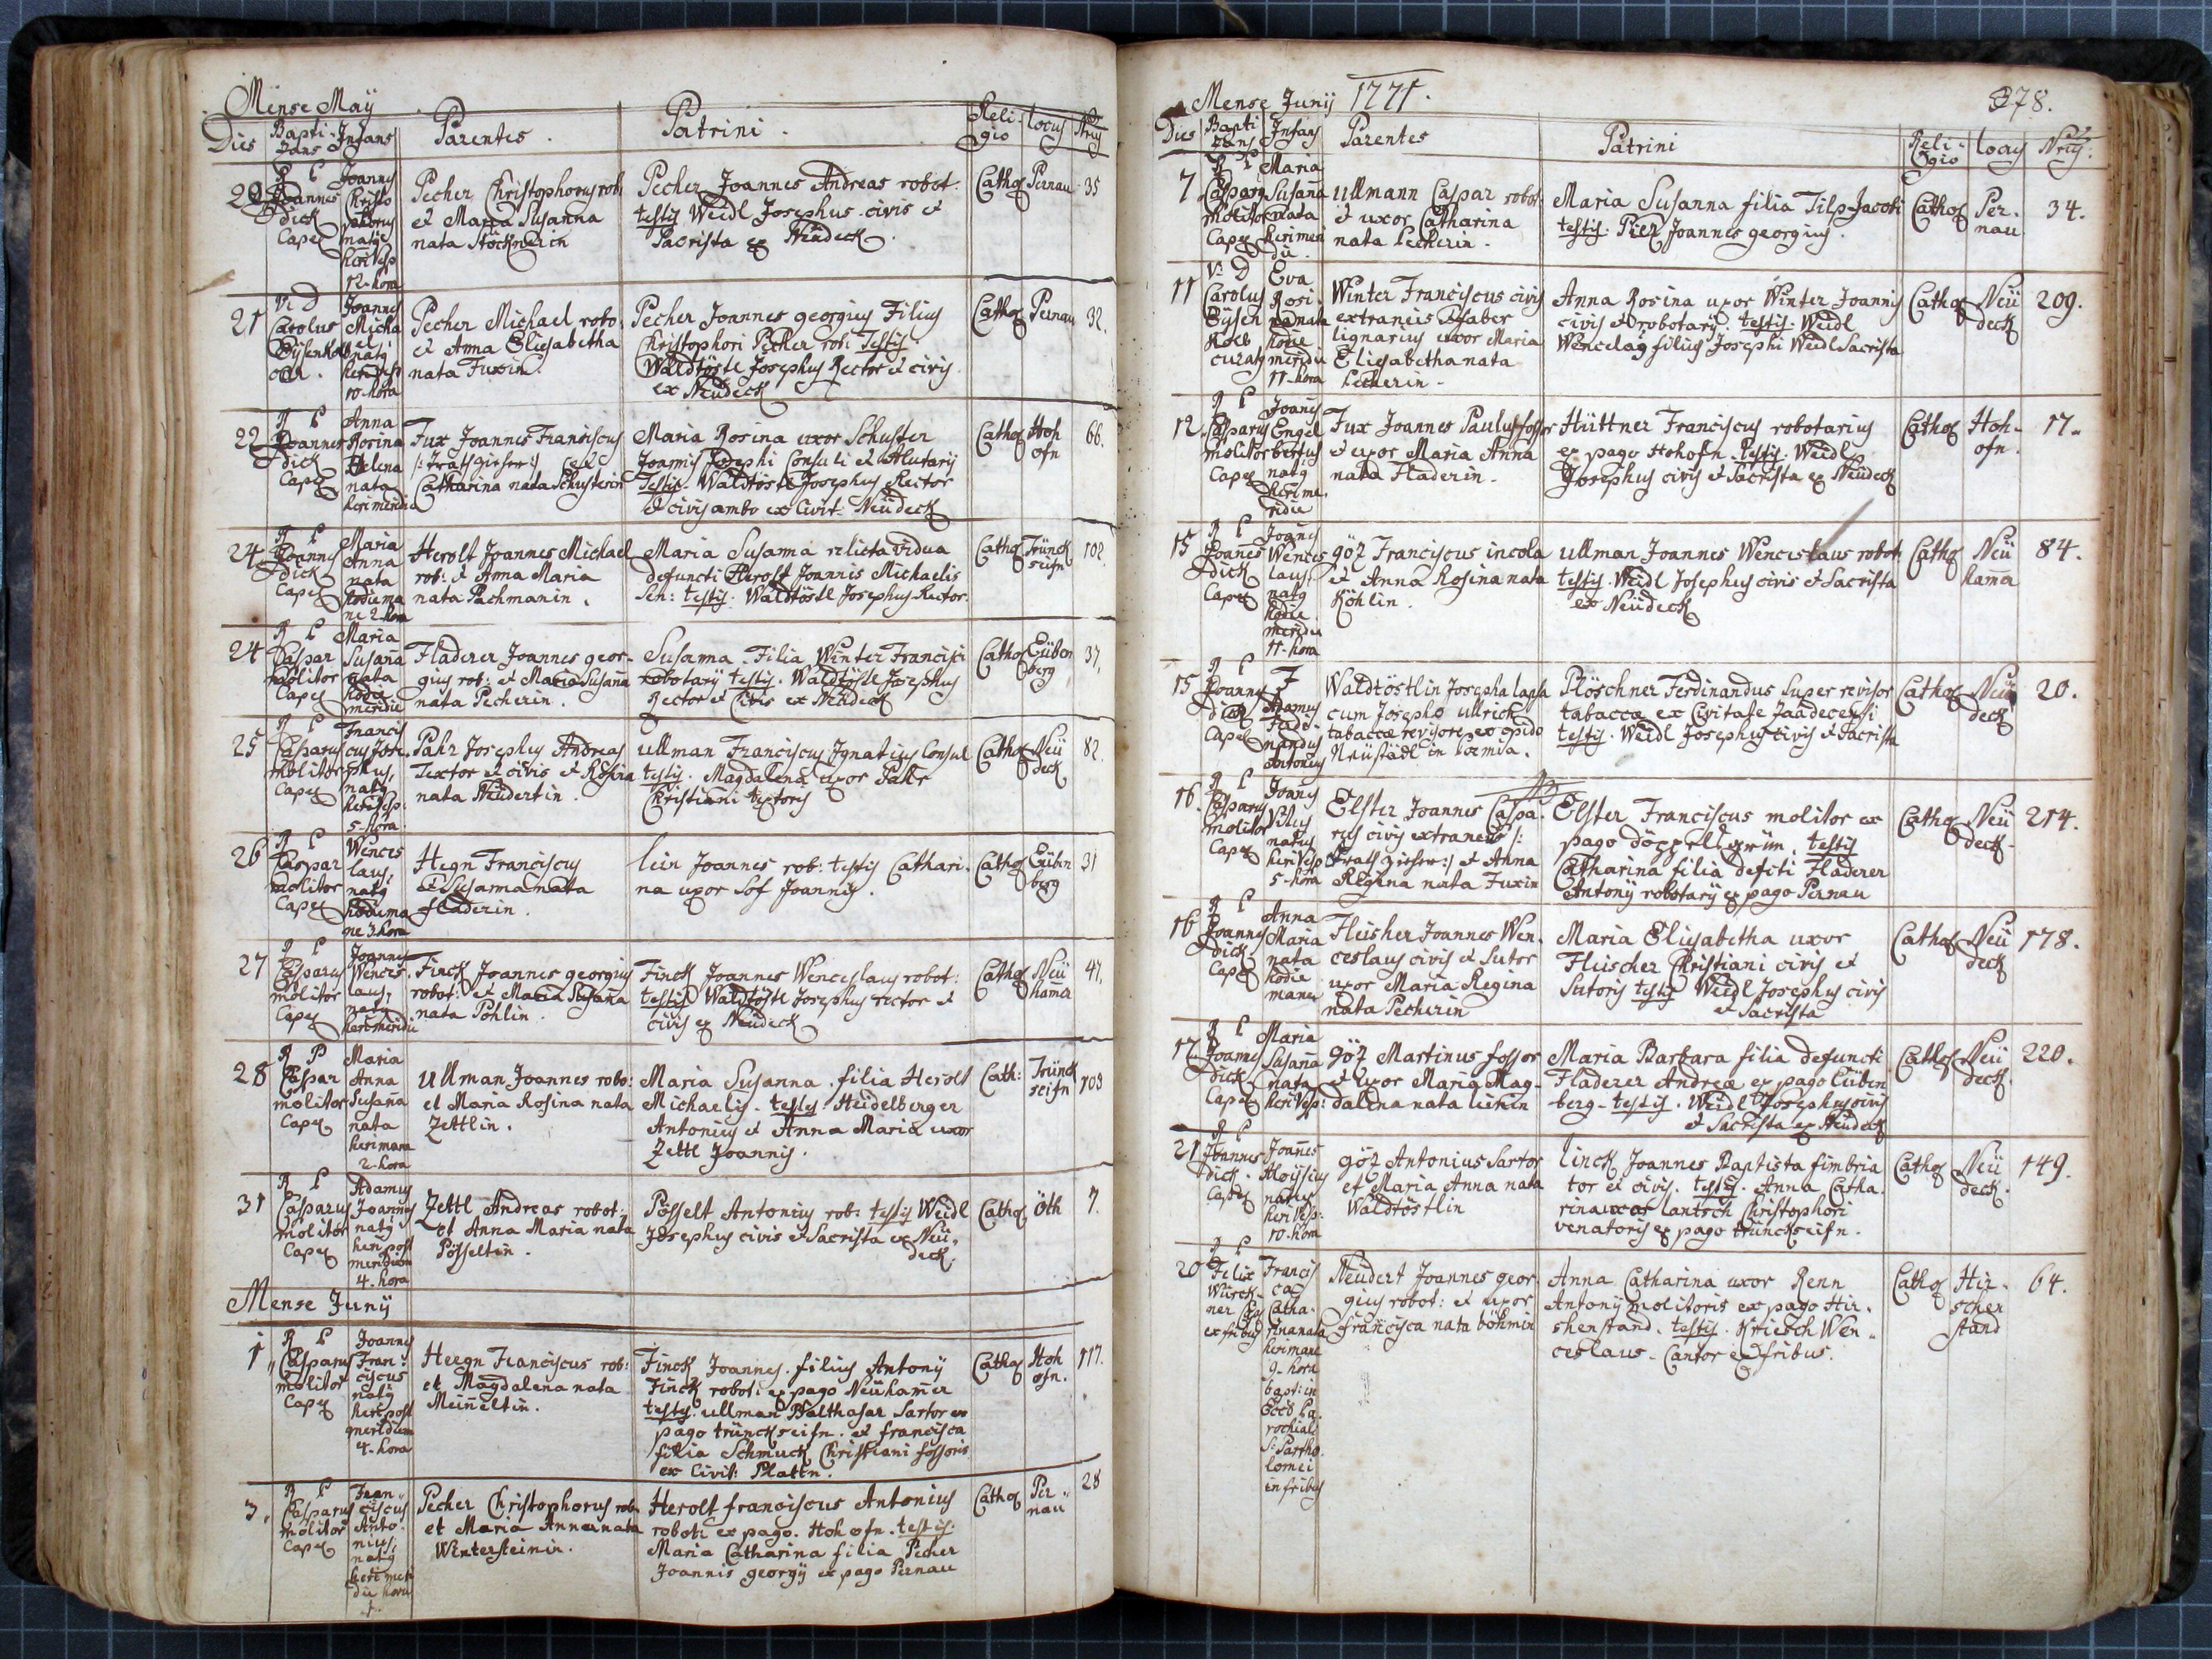 Mense Maÿ
Dies
Bapti-
zans
Infans
Parentes.
Patrini.
Reli-
gio
locus
Nrus
20
R P
Joannes
dick
Capel
Joannes
Christo
phorus
natus
heri Vesp
12-hora
Pecher Christophorus rob:
et Maria Susanna
nata Stöcknerin
Pecher Joannes Andreas robot:
testis Weidl Josephus civis et
Sacrista ex Neüdeck
Cathol
Pernau
35
21
V. D
Carolus
Eÿsenkolb
Joannes
Micha
el natus
heri Vesp
10-hora
Pecher Michael robo:
et Anna Elisabetha
nata Fuxin.
Pecher Joannes georgius Filius
Christophori Pecher rob: Testis.
Waldtöstl Josephus Rector et civis
ex Neudeck
Cathol
Pernau
32.
22
R P
Joannes
dick
Capel
Anna
Rosina
Helena
nata
heri meridie
Fux Joannes Franciscus
Catharina nata Schusterin
Maria Rosina uxor Schuster
Joannis Josephi Consuli et Alutarÿ
Testis. Waldtöstl Josephus Rector
et civis ambo ex Civit: Neüdeck
Cathol
Hoh
ofn
66.
24
R P
Joannes
dick
Capel
Maria
Anna
nata
hodie ma
ne 2-hora
Herolt Joannes Michael
rob: et Anna Maria
nata Pachmanin.
Maria Susanna relicta vidua
defuncti Herolt Joannis Michaelis
Sen: testis. Waldtöstl Josephus Rector.
Cathol
Trünck
seifn
102.
24
R P
Caspar
molitor
Capel
Maria
Susana
nata
hodie
meridie
Fladerer Joannes geor-
gius rob: et Maria Susana
nata Pecherin.
Susanna Filia Winter Francisci
robotarÿ testis. Waldtöstl Josephus
Rector et Civis ex Neüdeck
Cathol
Eüben
berg
37.
25
R P
Casparus
molitor
Capel
Francis
cus Jose
phus,
natus
heri Vesp:
5-hora
Pahr Josephus Andreas
Textor et civis et Rosina
nata Neudertin.
ullman Franciscus Ignatius Consul
testis. Magdalena uxor Pahr
Christiani textoris
Cathol
Neü
deck
82.
26
R P
Caspar
molitor
Capel
Wences
laus,
natus
hodie ma
ne 3-hora
Hegn Franciscus
et Susanna nata
fladerin.
lein Joannes rob: testis Cathari-
na uxor Sof Joannis.
Cathol
Eüben
berg
31
27
R P
Casparus
molitor
Capel
Joannes
Wences
laus,
natus
heri meridie
Finck Joannes georgius
robot: et Maria Susana
nata Pöhlin.
Finck Joannes Wenceslaus robot:
testis Waldtöstl Josephus rector et
civis ex Neüdeck
Cathol
Neü
hama
47.
28
R P
Caspar
molitor
Capel
Maria
Anna
Susana
nata
heri mane
2-hora
Ullman Joannes robo:
et Maria Rosina nata
Zettlin.
Maria Susanna filia Herolt
Michaelis. testes: Heidelberger
Antonius et Anna Maria uxor
Zettl Joannis.
Cath:
Trünck
seifn
103
31
R P
Casparus
molitor
Capel
Adamus
Joannes
natus
heri post
meridiem
4-hora
Zettl Andreas robot:
et Anna Maria nata
Pösseltin.
Pösselt Antonius rob: testis Weidl
Josephus civis et Sacrista ex Neü-
deck.
Cathol
öth
7.
Mense Junÿ
1
R P
Casparus
molitor
Capel
Joannes
Fran-
ciscus
natus
heri post
meridiem
4-hora
Heegn Franciscus rob:
et Magdalena nata
Meineltin.
Finck Joannes filius Antonÿ
Finck robot: ex pago Neühamer
testes: ullman Balthasar Sartor ex
pago trünckseifn. et francisca
filia Schmuck Christiani fossoris
ex Civit: Plattn.
Cathol
Hoh
ofn.
117.
3.
R P
Casparus
molitor
Capel
Fran-
ciscus
Anto-
nius,
natus
heri meri
die hora
1.
Pecher Christophorus rob:
et Maria Anna nata
Wintersteinin.
Herolt franciscus Antonius
robot: ex pago Hohofn. testis:
Maria Catharina filia Pecher
Joannis georgÿ ex pago Pernau
Cathol
Per-
nau
28
Mense Junÿ 1771.
378.
Dies
Bapti
zans
Infans
Parentes
Patrini
Reli-
gio
locus
Nrus:
7
R P
Casparus
molitor
Capel
Maria
Susana
nata
heri meri
die.
ullmann Caspar robot:
et uxor Catharina
nata Pecherin.
Maria Susanna filia Tilp Jacobi
testis. Pier Joannes georgius.
Cathol
Per-
nau
34.
11
V. D
Carolus
Eÿsen
kolb
curatus
Eva
Rosi-
na nata
hodie
meridie
11-hora
Winter Franciscus civis
extraneus et faber
lignarius uxor Maria
Elisabetha nata
Pecherin.
Anna Rosina uxor Winter Joannis
civis et robotarÿ. testis. Weidl
Wenceslaus filius Josephi Weidl Sacrista
Cathol
Neü
deck
209.
12
R P
Casparus
molitor
Capel
Joanes
Engel
bertus
natus
heri me
ridie
Fux Joannes Paulus fossor
et uxor Maria Anna
nata Fladerin.
Hüttner Franciscus robotarius
ex pago Hohofn. testis. Weidl
Josephus civis et Sacrista ex Neüdeck
Cathol
Hoh-
ofn.
17.
15
R P
Joanes
dick
Capel
Joanes
Wences
laus,
natus
hodie
meridie
11-hora
göz Franciscus incola
et Anna Rosina nata
Köhlin.
ullman Joannes Wenceslaus robot:
testis. Weidl Josephus civis et Sacrista
ex Neüdeck
Cathol
Neü
hama
84.
15
R P
Joannes
dick
Capel
Adamus
Ferdi-
nandus
Antonius
Waldtöstlin Josepha lapsa
cum Josepho ullrich
tabaccæ revisore ex opido
Neüstädl in boemia.
Plöschner Ferdinandus Super revisor
tabaccæ ex Civitate
testis. Weidl Josephus civis et Sacrista
Cathol
Neü
deck
20.
16.
R P
Casparus
molitor
Capel
Joanes
Vitus
natus
heri Vesp
5-hora
Elster Joannes Caspa-
rus civis extraneus
et Anna
Regina nata Fuxin
Elster Franciscus molitor ex
pago döppeltgrün. testis
Catharina filia deficti Fladerer
Antonÿ robotarÿ ex pago Pernau
Cathol
Neü
deck.
214.
16
R P
Joannes
dick
Capel
Anna
Maria
nata
hodie
mane
Fleisher Joannes Wen-
ceslaus civis et Sutor
uxor Maria Regina
nata Pecherin
Maria Elisabetha uxor
Fleischer Christiani civis et
Sutoris testis Weidl Josephus civis
et Sacrista
Cathol
Neü
deck
178.
17
R P
Joannes
dick
Capel
Maria
Susana
nata
heri Vesp:
göz Martinus fossor
et uxor Maria Mag-
dalena nata
Maria Barbara filia defuncti
Fladerer Andreæ ex pago Eüben
berg. testis. Weidl Josephus civis
et Sacrista ex Neüdeck
Cathol
Neü
deck.
220.
21
R P
Joannes
dick.
Capel
Joanes
Aloÿsius
natus
heri Vesp:
10-hora
göz Antonius Sartor
et Maria Anna nata
Waldtöstlin
linck Joannes Baptista fimbria
tor et civis. testis. Anna Catha-
rina uxor lantsch Christophori
venatoris ex pago trünckseifn.
Cathol
Neü
deck.
149.
20
R P
Felix
Würck-
ner
ex fribus
Francis
ca
Catha-
rina nata
heri mane
9-hora
bapt: in
Eccl: Pa-
rochiali
S: Bartho-
lomei
in fribus
Neüdert Joannes geor-
gius robot: et uxor
francisca nata böhmin
Anna Catharina uxor Renn
Antonÿ molitoris ex pago Hir-
shenstand. testis. Kriesch Wen-
ceslaus. Cantor ex fribus.
Cathol
Hir-
schen
stand
64.